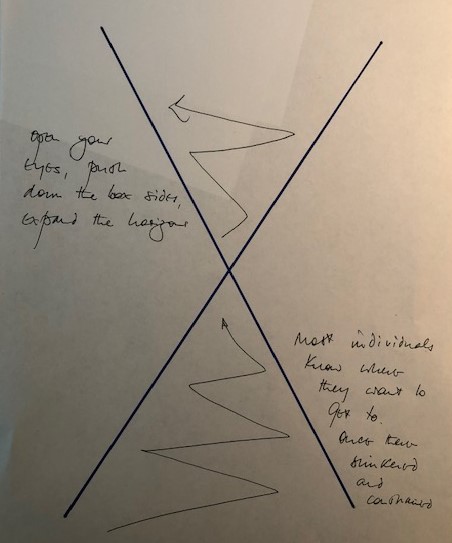 open your
Eyes, push
down the box sides,
Expand the horizon
Most individuals
Know where
they want to
Get to.
Once there
and